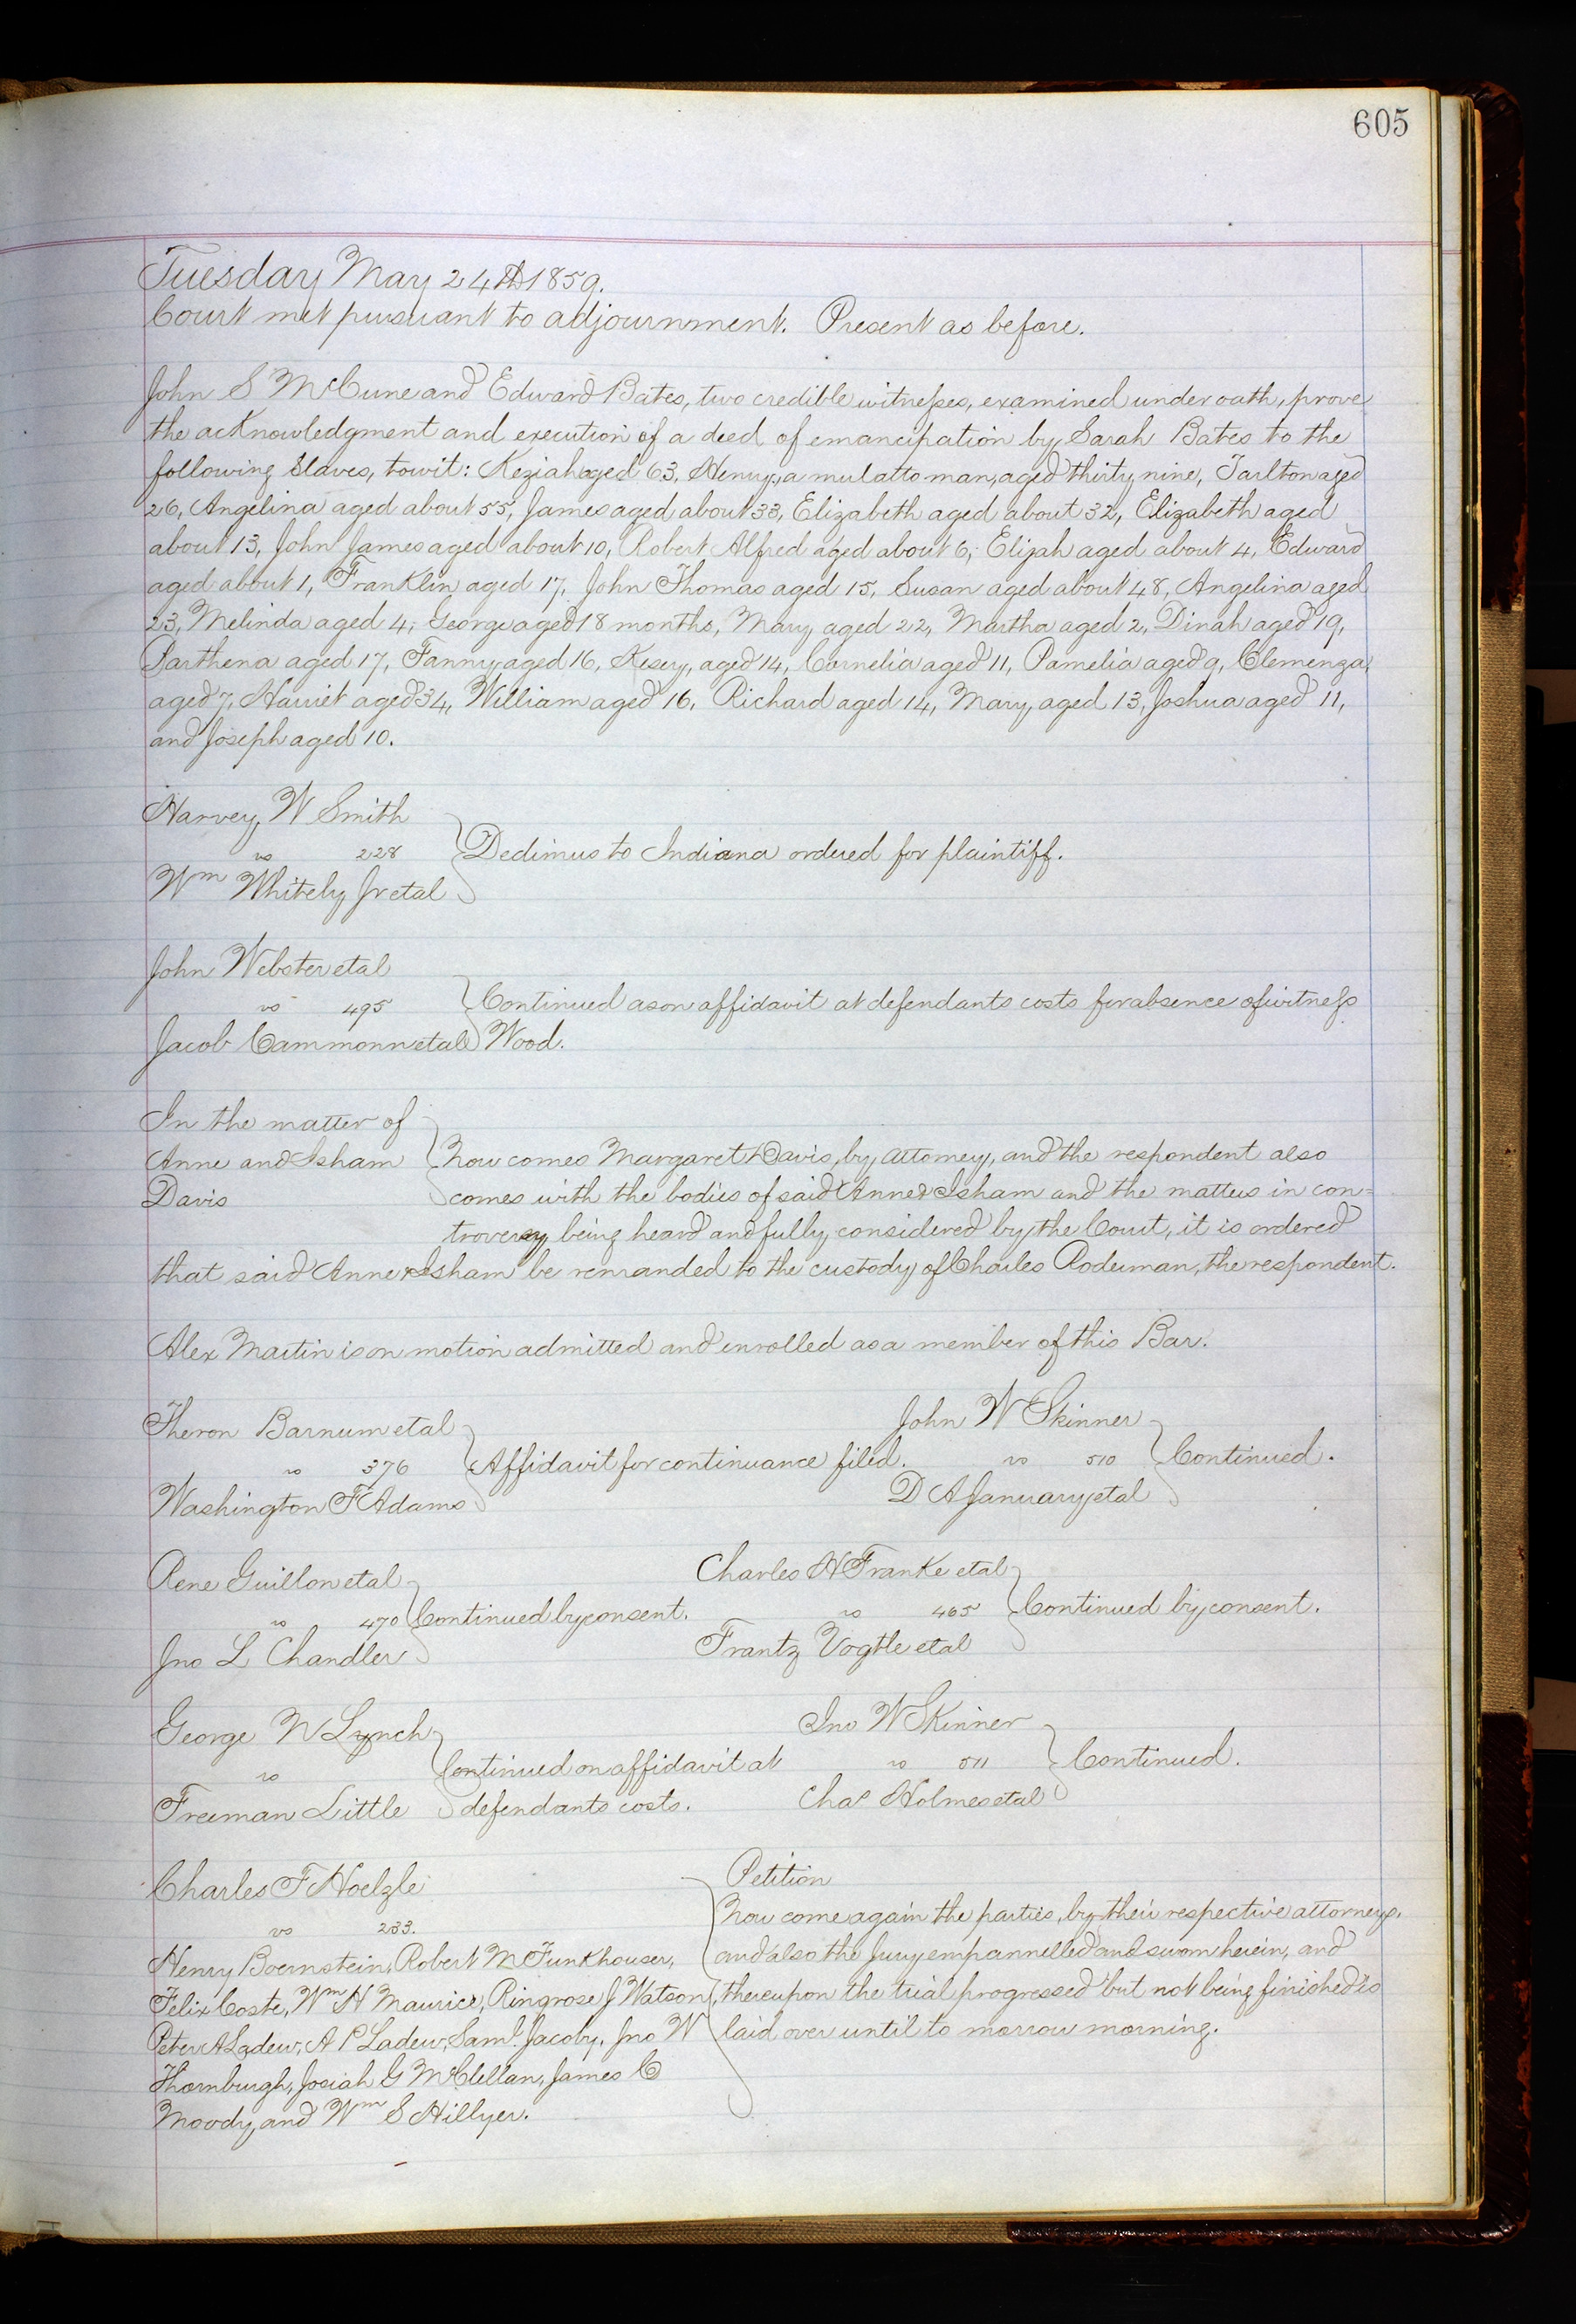 605
Tuesday May 24th 1859.
Court met pursuant to adjournment. Present as before.
John S McCune and Edward Bates, two credible witnesses, examined under oath, prove
the acknowledgment and execution of a deed of emancipation by Sarah Bates to the
following Slaves, towit: Keziah aged 63, Henry, a mulatto man, aged thirty nine, Tarlton aged
26, Angelina aged about 55, James aged about 33, Elizabeth aged about 32, Elizabeth aged
about 13, John James aged about 10, Robert Alfred aged about 6, Elijah aged about 4, Edward
aged about 1, Franklin aged 17, John Thomas aged 15, Susan aged about 48, Angelina aged
23, Melinda aged 4, George aged 18 months, Mary aged 22, Martha aged 2, Dinah aged 19,
Parthena aged 17, Fanny aged 16, Kesey, aged 14, Cornelia aged 11, Pamelia aged 9, Clemenza
aged 7, Harriet aged 34, William aged 16, Richard aged 14, Mary, aged 13, Joshua aged 11,
and Joseph aged 10.
Harvey W Smith
vs 228 Dedimus to Indiana ordered for plaintiff.
Wm Whitely Jr etal
John Webster etal
vs 495 Continued as on affidavit at defendants costs for absence of witness
Jacob Cammonn etal Wood.
In the matter of
Anne and Isham Now comes Margaret Davis, by attorney, and the respondent also
Davis comes with the bodies of said Anne & Isham and the matters in con=
troversy being heard and fully considered by the Court, it is ordered
that said Anne & Isham be remanded to the custody of Charles Roderman, the respondent.
Alex Martin is on motion admitted and enrolled as a member of this Bar.
Theron Barnum etal
vs 376 Affidavit for continuance filed.
Washington F Adams
John W Skinner
vs 510 Continued.
D A January etal
Rene Guillon etal
vs 470 Continued by consent.
Jno L Chandler
Charles H Franke etal
vs 465 Continued by consent.
Frantz Vogtle etal
George W Lynch
vs Continued on affidavit at
Freeman Little defendants costs.
Jno W Skinner
vs 511 Continued.
Chas Holmes etal
Charles F Hoelzle
vs 233.
Henry Boernstein, Robert M Funkhouser,
Felix Coste, Wm H Maurice, Ringrose J Watson,
Peter A Ladew, A P Ladew, Saml. Jacoby, Jno W
Thornburgh, Josiah G McClellan, James C
Moody, and Wm S Hillyer.
Petition
Now come again the parties, by their respective attorneys,
and also the Jury empannelled and sworn herein, and
thereupon the trial progressed but not being finished is
laid over until to morrow morning.